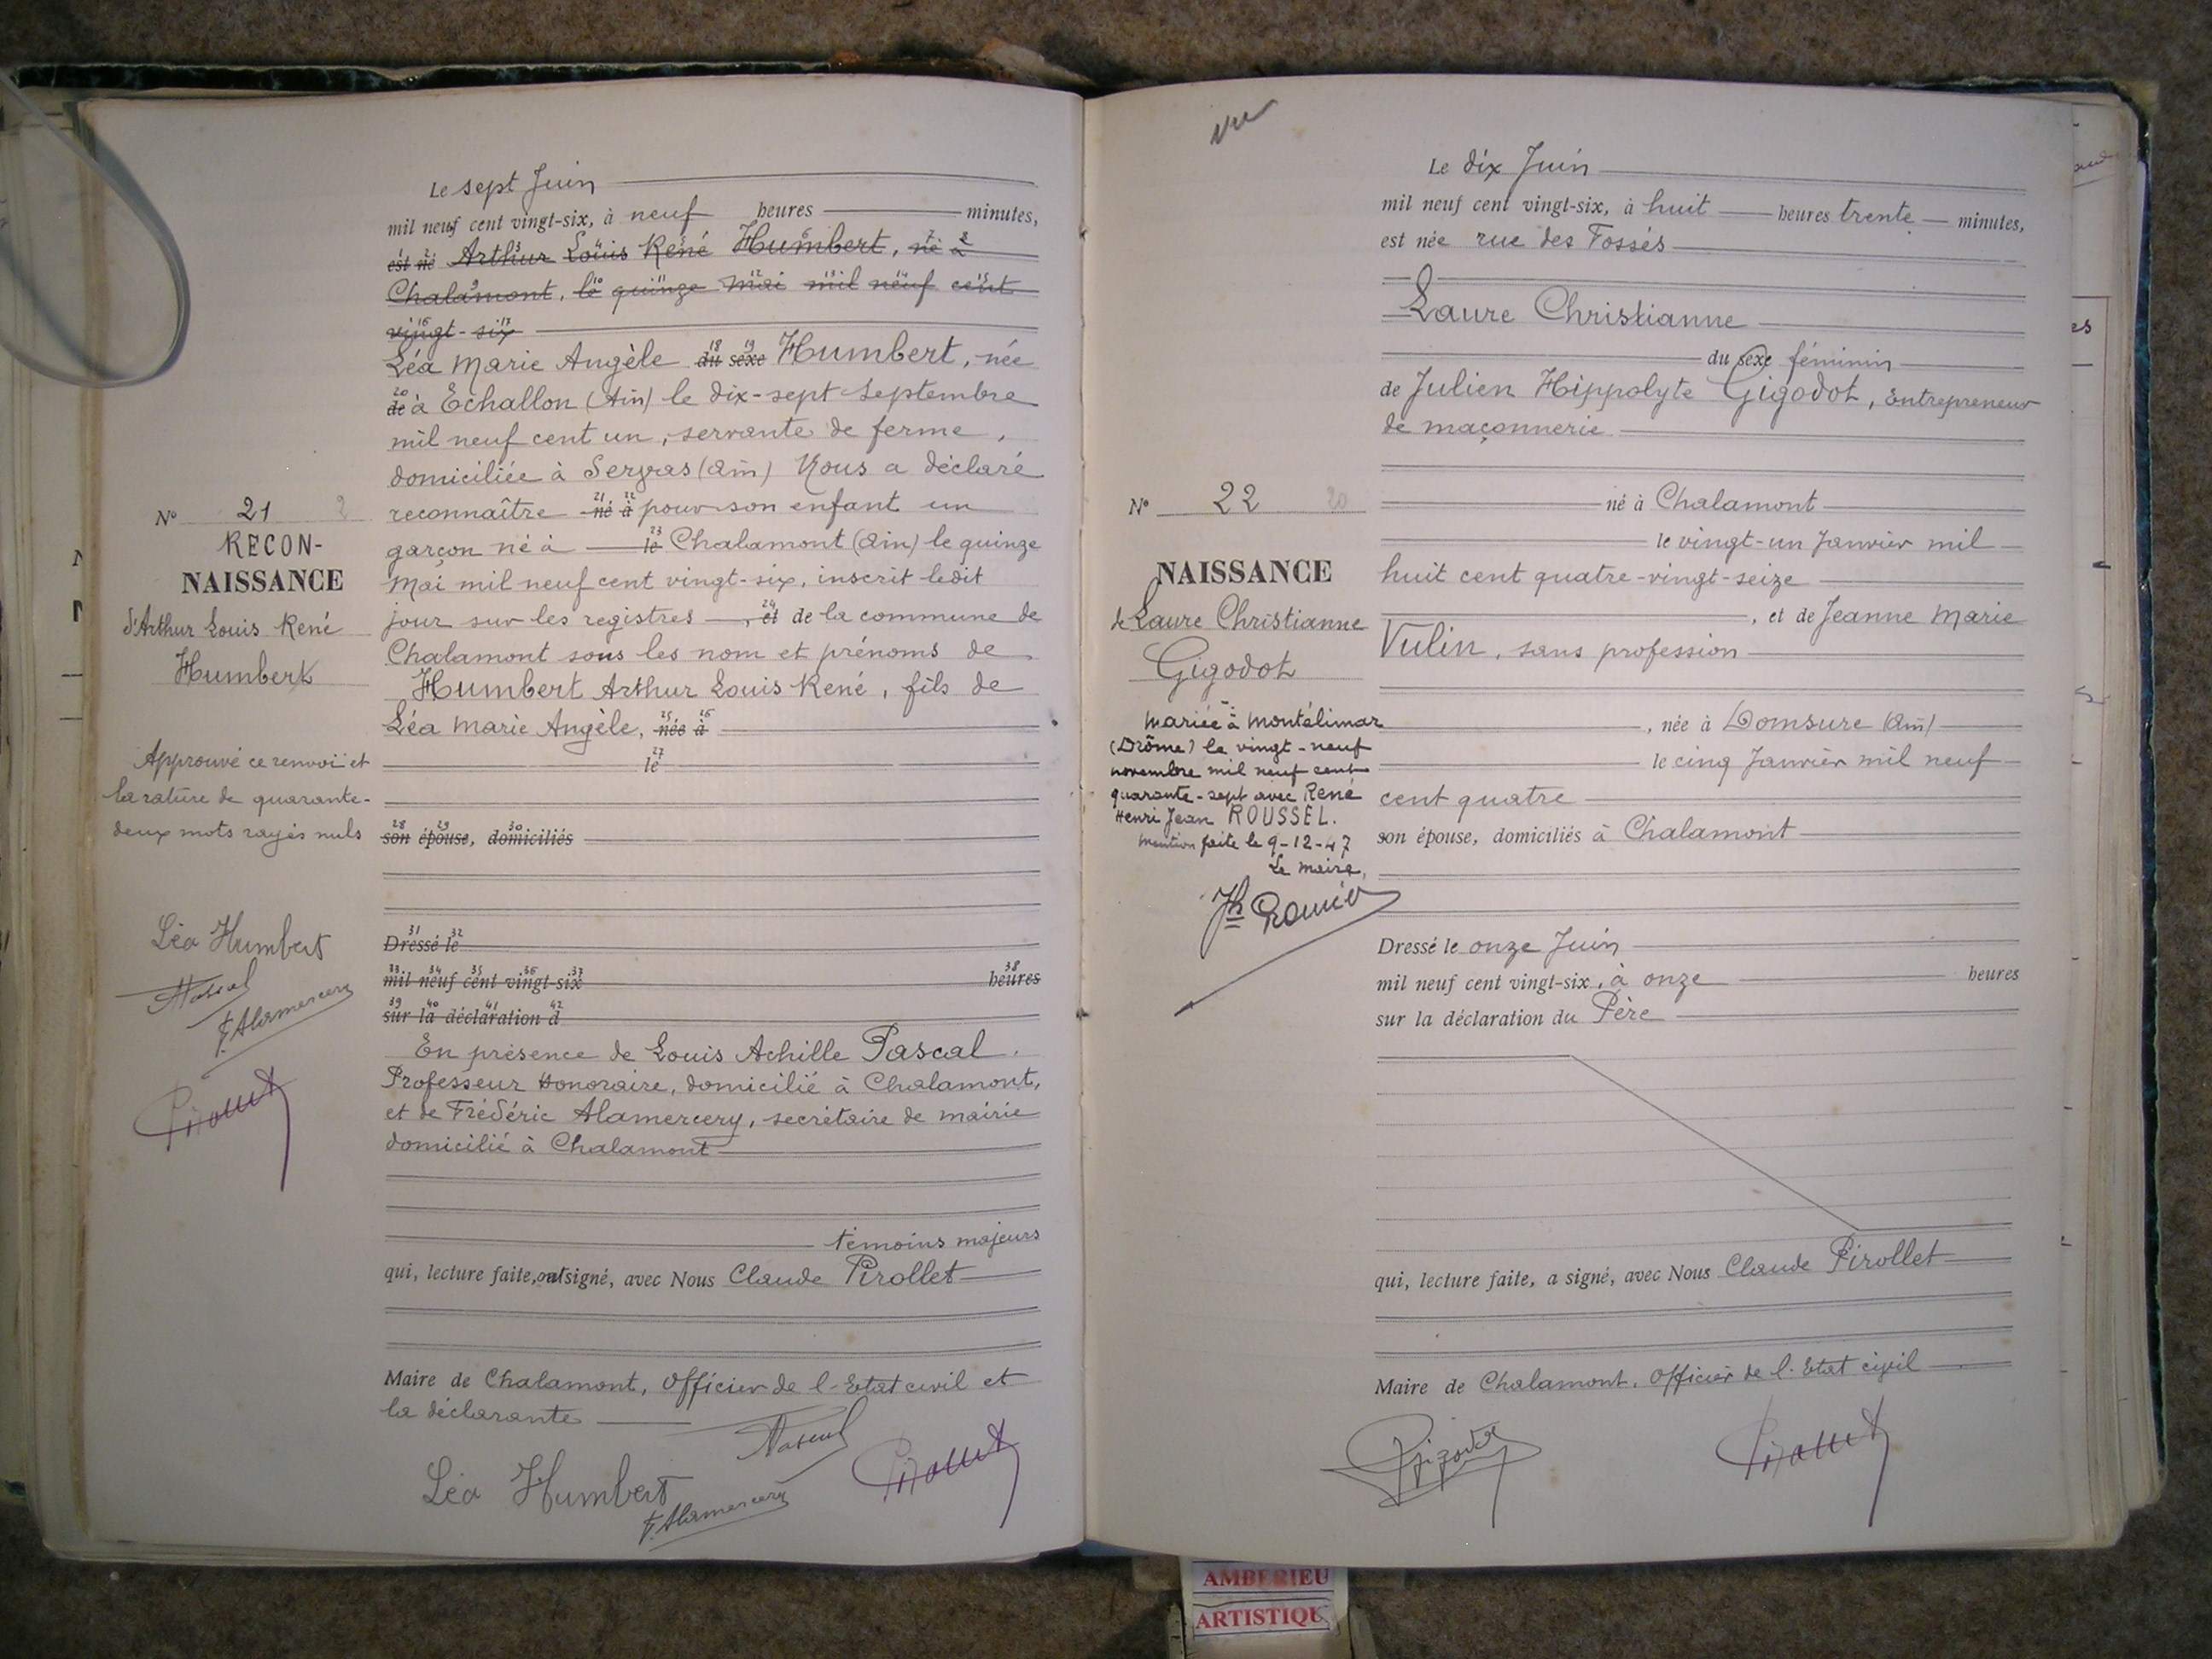 Le sept Juin
mil neuf cent vingt-six, à neuf heures minutes,
est né Arthur Louis René Humbert, né à
Chalamont, le quinze Mai mil neuf cent
vingt-six
Léa Marie Angèle du sexe Humbert, née
de à Echallon (Ain) le dix-sept Septembre
mil neuf cent un, servante de ferme,
domiciliée à Servas (Ain) Nous a déclaré
reconnaître né à pour son enfant un
garçon né à le Chalamont (Ain) le quinze
Mai mil neuf cent vingt-six, inscrit ledit
jour sur les registres , et de la commune de
Chalamont sous les nom et prénoms de
Humbert Arthur Louis René, fils de
Léa Marie Angèle, née à
le
son épouse, domiciliés
Dressé le
mil neuf cent vingt-six heures
sur la déclaration d
En présence de Louis Achille Pascal.
Professeur Honoraire, domicilié à Chalamont,
et de Frédéric Alamercery, secrétaire de mairie
domicilié à Chalamont
témoins majeurs
qui, lecture faite, ont signé, avec Nous Claude Pirollet
Maire de Chalamont, Officier de l'Etat civil et
la déclarante
Léa Humbert
F. Alamercery
N° 21
RECON-
NAISSANCE
d'Arthur Louis René
Humbert
Approuvé ce renvoi et
la rature de quarante-
deux mots rayés nuls
Léa Humbert
F. Alamercery
vu
Le dix Juin
mil neuf cent vingt-six, à huit heures trente minutes,
est née rue des Fossés
Laure Christianne
du sexe féminin
de Julien Hippolyte Gigodot, Entrepreneur
de maçonnerie
né à Chalamont
le vingt-un Janvier mil
huit cent quatre-vingt-seize
, et de Jeanne Marie
Vulin, sans profession
, née à Domsure (Ain)
le cinq Janvier mil neuf
cent quatre
son épouse, domiciliés à Chalamont
Dressé le onze Juin
mil neuf cent vingt-six, à onze heures
sur la déclaration du Père
qui, lecture faite, a signé, avec Nous Claude Pirollet
Maire de Chalamont, Officier de l'Etat civil
Gigodot
N° 22 20
NAISSANCE
de Laure Christianne
Gigodot
Mariée à Montélimar
(Drôme) le vingt-neuf
novembre mil neuf cent
quarante-sept avec René
Henri Jean ROUSSEL.
Mention faite le 9-12-47
Le Maire,
AMBERIEU
ARTISTIQU